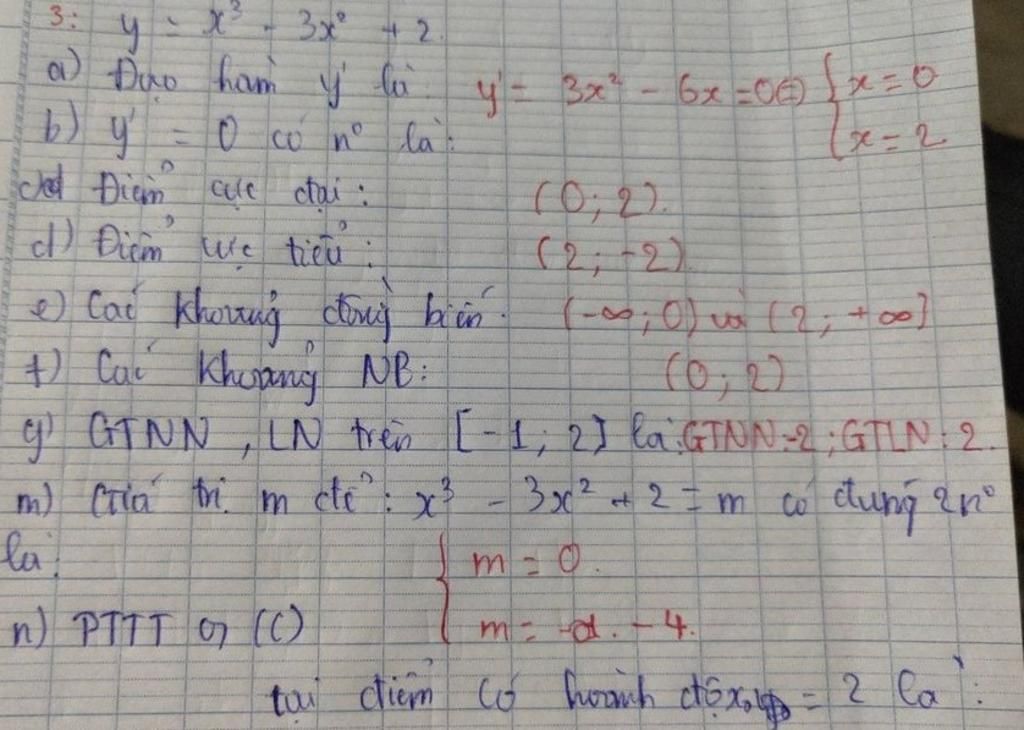 3: y = x³ - 3x² + 2.
a) Đạo hàm y' là y' = 3x² - 6x = 0 ⇔ { x = 0
b) y' = 0 có n° là: { x = 2
Điểm cực đại: (0; 2).
d) Điểm cực tiểu: (2; -2)
e) Các khoảng đồng biến: (-∞; 0) và (2; +∞)
f) Các khoảng NB: (0; 2)
g) GTNN, LN trên [-1; 2] là: GTNN: -2; GTLN: 2.
m) Giá trị m để: x³ - 3x² + 2 = m có đúng 2 n°
là: { m = 0.
n) PTTT of (C) { m = - 4.
tại điểm có hoành độ x₀ = 2 là: